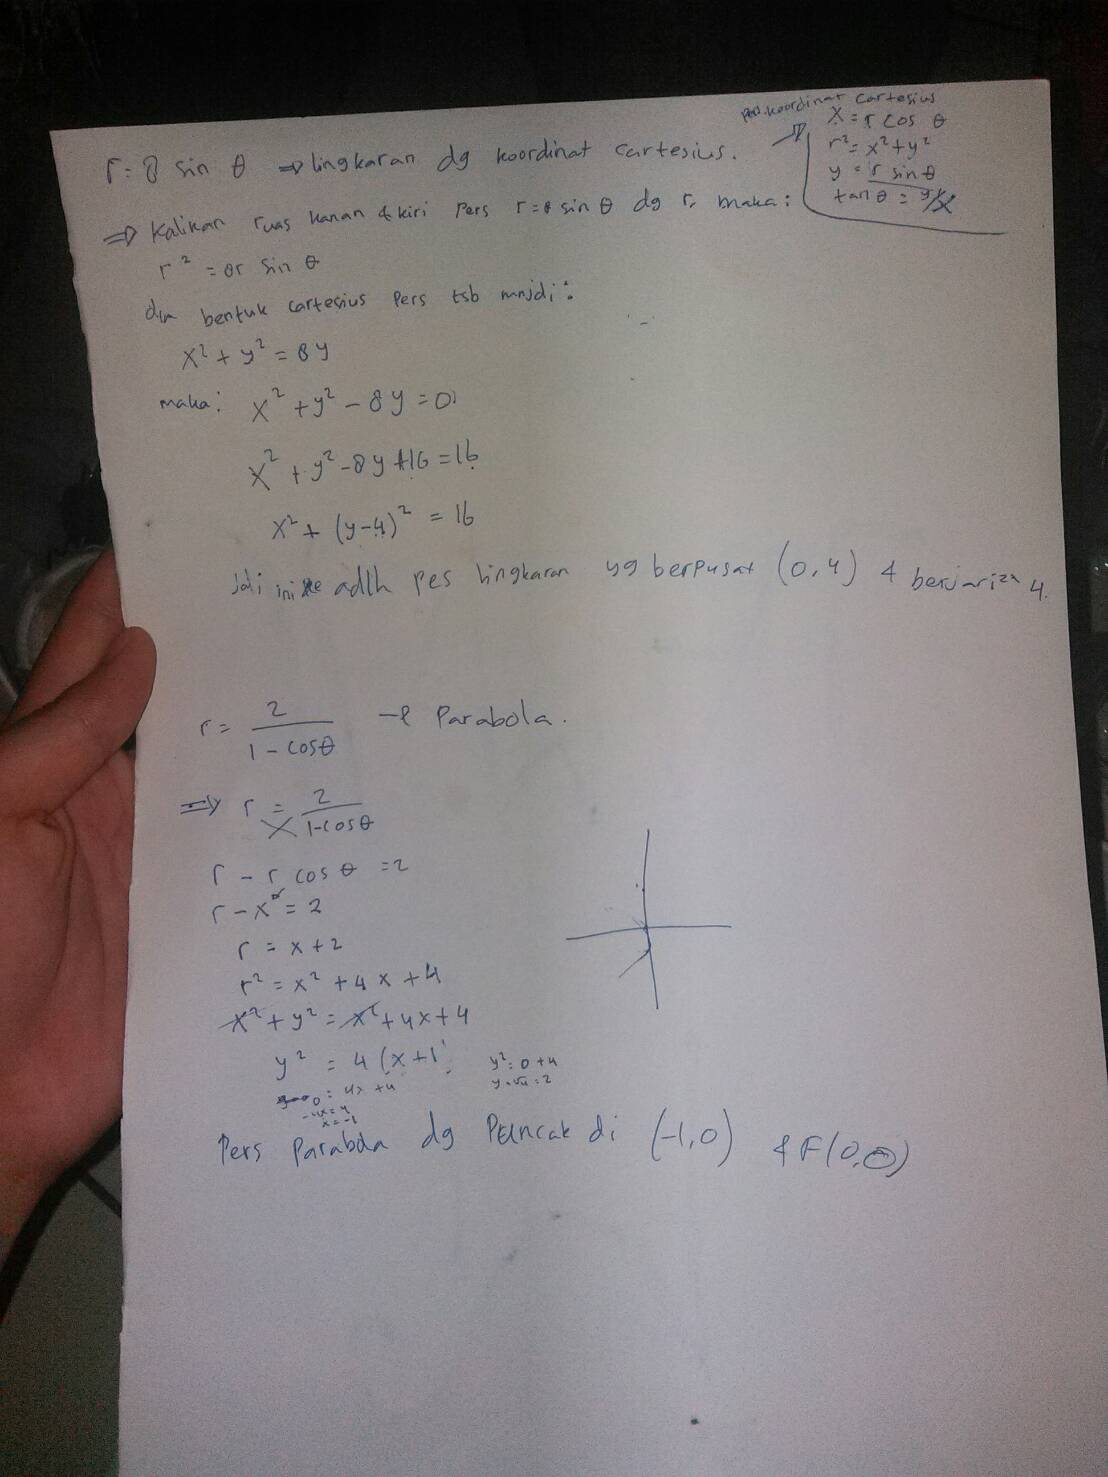 Pers. koordinat cartesius
x = r cos θ
r² = x² + y²
y = r sin θ
tan θ = y/x
r = 8 sin θ ⇒ lingkaran dg koordinat cartesius.
⇒ Kalikan ruas kanan & kiri Pers r = 8 sin θ dg r, maka:
r² = 8r sin θ
dlm bentuk cartesius Pers tsb mnjdi:
x² + y² = 8y
maka: x² + y² - 8y = 0
x² + y² - 8y + 16 = 16
x² + (y-4)² = 16
Jdi ini adlh pes lingkaran yg berpusat (0,4) & berjari²n 4.
r = 2/(1 - cosθ) → Parabola.
⇒ r = 2/(1-cosθ)
r - r cos θ = 2
r - x = 2
r = x + 2
r² = x² + 4x + 4
x² + y² = x² + 4x + 4
y² = 4(x+1)
y² = 0 + 4
y = √4 = 2
0 = 4x + 4
-4x = 4
x = -1
Pers Parabola dg Puncak di (-1,0) & F(0,0)